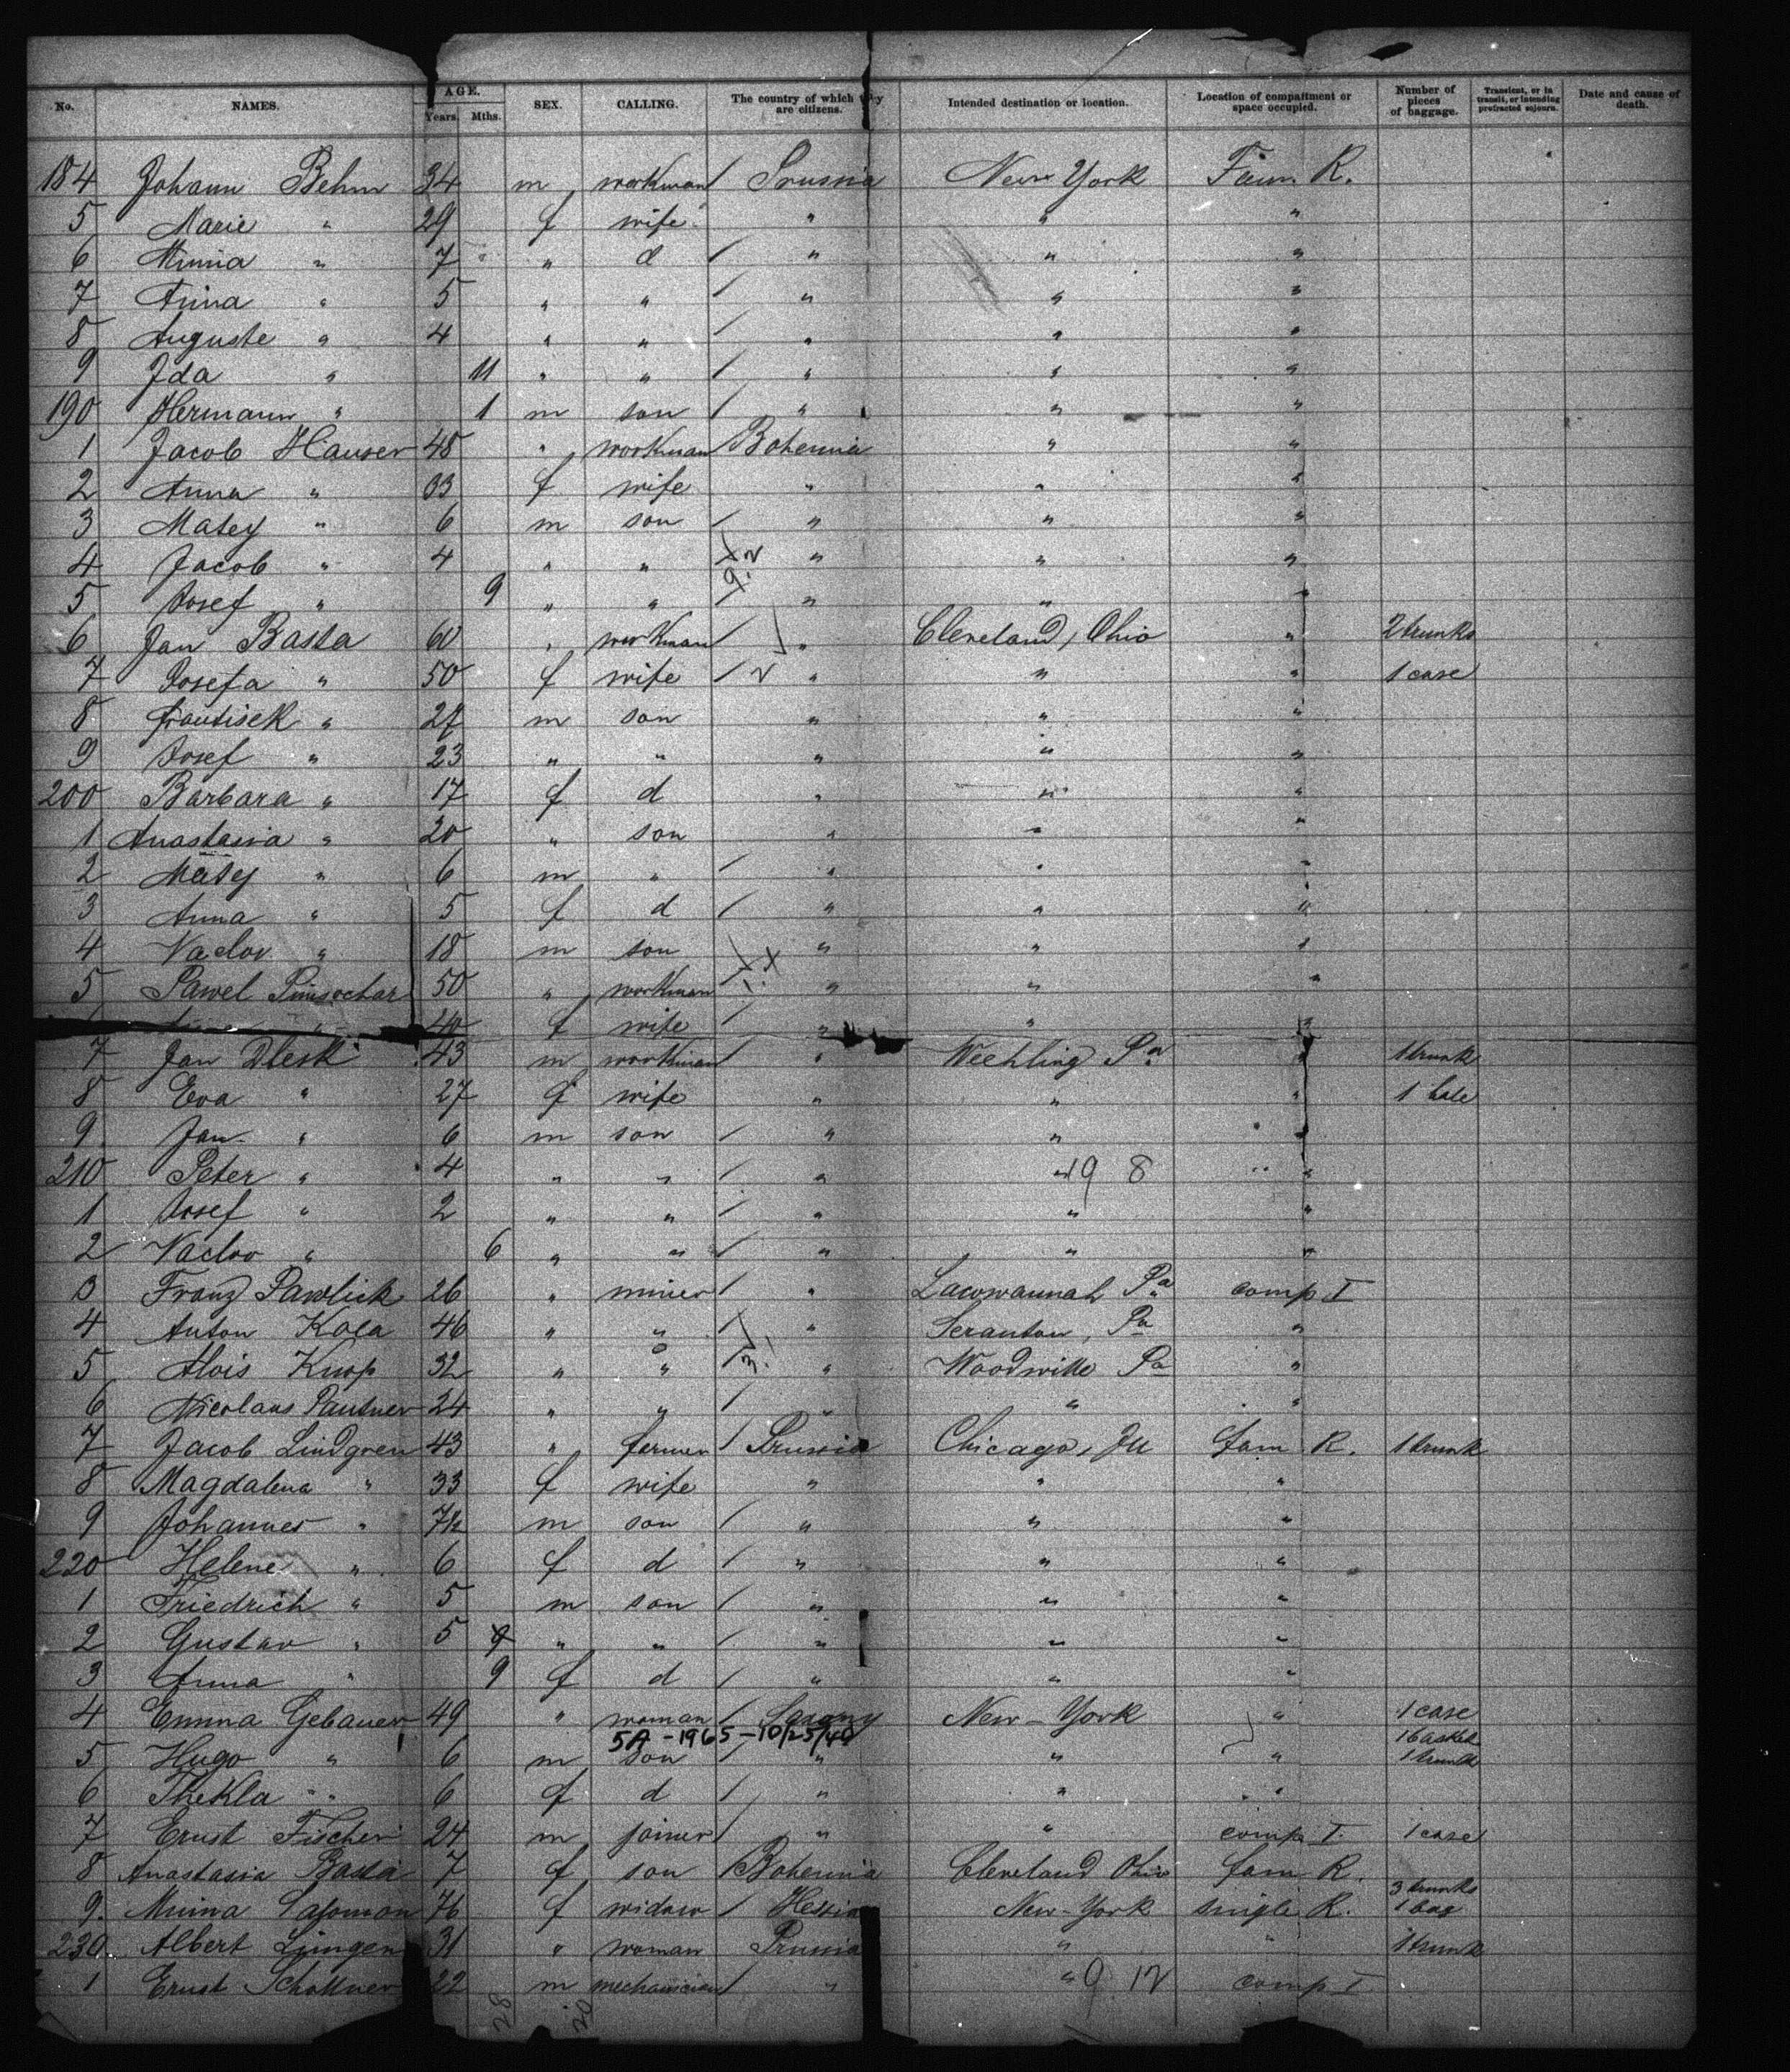 No. NAMES. AGE. Years. Mths. SEX. CALLING. The country of which they are citizens. Intended destination or location. Location of compartment or space occupied. Number of pieces of baggage. Transient, or in transit, or intending protracted sojourn. Date and cause of death.
184 Johann Behm 34 m workman Prussia New York Fam. R.
5 Marie " 29 f wife " " "
6 Minna " 7 " d " " "
7 Anna " 5 " " " " "
8 Auguste " 4 " " " " "
9 Ida " 11 " " " " "
190 Hermann " 1 m son " " "
1 Jacob Hauser 48 " workman Bohemia " "
2 Anna " 33 f wife " " "
3 Matey " 6 m son " " "
4 Jacob " 4 " " " " "
5 Josef " 9 " " " " "
6 Jan Basta 60 " workman " Cleveland, Ohio " 2 trunks
7 Josefa " 50 f wife " " " 1 case
8 frantisek " 27 m son " " "
9 Josef " 23 " " " " "
200 Barbara " 17 f d " " "
1 Anastasia " 20 " son " " "
2 Matey " 6 m " " " "
3 Anna " 5 f d " " "
4 Vaclav " 18 m son " " "
5 Pawel 50 " workman " " "
40 f wife " " "
7 Jan Dleski 43 m workman " Weehling Pa " 1 trunk
8 Eva " 27 f wife " " " 1 bale
9 Jan " 6 m son " " "
210 Peter " 4 " " " " 19 8 "
1 Josef " 2 " " " " "
2 Vaclav " 6 " " " " "
3 Franz Pawlick 26 " miner " Lacowannah Pa comp I
4 Anton Kola 46 " " " Scranton, Pa "
5 Alois Knop 32 " " " Woodwille Pa "
6 Nicolaus Pautner 24 " " " " "
7 Jacob Lindgren 43 " farmer Prussia Chicago, Ill fam R. 1 trunk
8 Magdalena " 33 f wife " " "
9 Johannes " 7½ m son " " "
220 Helene " 6 f d " " "
1 Friedrich " 5 m son " " "
2 Gustav " 5 " " " " "
3 Anna " 9 f d " " "
4 Emma Gebauer 49 " woman Saxony New-York " 1 case
5A-1965-10/25/40 1 basket
5 Hugo " 6 m son " " " 1 trunk
6 Thekla " 6 f d " " "
7 Ernst Fischer 24 m joiner " " comp I. 1 case
8 Anastasia Basta 7 f son Bohemia Cleveland Ohio fam R.
3 trunks
9. Minna Salomon 76 f widow Hessia New-York single R. 1 bag
230 Albert 31 " woman Prussia " " 1 trunk
1 Ernst Schottner 22 m mechanician " " 9 12 comp I
28 20